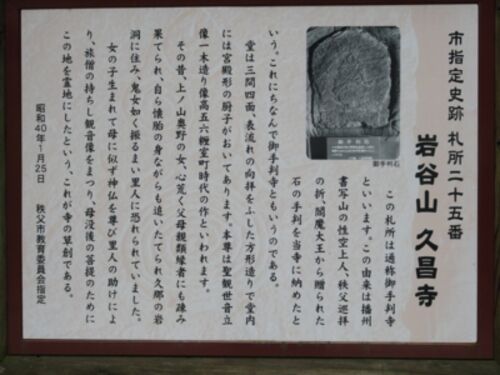 市指定史跡 札所二十五番
岩谷山 久昌寺
この札所は通称御手判寺
といいます。この由来は播州
書写山の性空上人、秩父巡拝
の折、閻魔大王から贈られた
石の手判を当寺に納めたと
いう。これにちなんで御手判寺ともいうのである。
堂は三間四面、表流れの向拝をふした方形造りで堂内
には宮殿形の厨子がおいてあります。本尊は聖観世音立
像一木造り像高五六糎室町時代の作といわれます。
その昔、上ノ山奥野の女、心荒く父母親類縁者にも疎み
果てられ、自ら懐胎の身ながらも追いたてられ久那の岩
洞に住み、鬼女如く振るまい里人に恐れられていました。
女の子生まれて母に似ず神仏を尊び里人の助けによ
り、旅僧の持ちし観音像をまつり、母没後の菩提のために
この地を霊地にしたという、これが寺の草創である。
昭和40年1月25日 秩父市教育委員会指定
御手判石